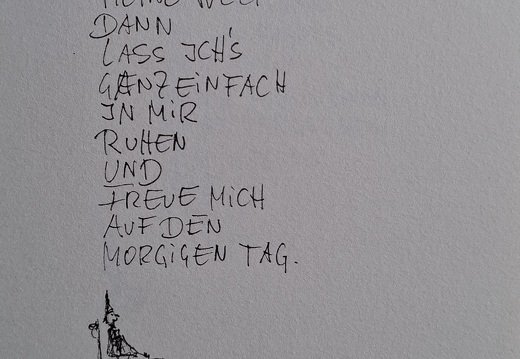 MEINE WELT
DANN
LASS ICH'S
GANZ EINFACH
IN MIR
RUHEN
UND
FREUE MICH
AUF DEN
MORGIGEN TAG.